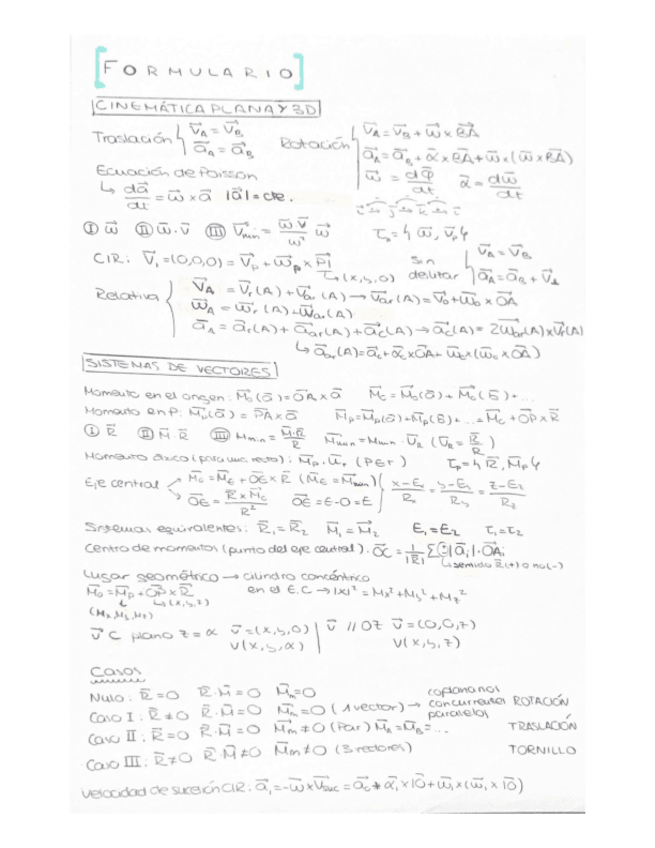 [FORMULARIO]
CINEMÁTICA PLANA Y 3D
Traslación { V⃗A = V⃗B   Rotación { V⃗A = V⃗B + ω⃗ × BA⃗
a⃗A = a⃗B   a⃗A = a⃗B + α⃗ × BA⃗ + ω⃗ × (ω⃗ × BA⃗)
Ecuación de Poisson   ω⃗ = dφ⃗/dt   α⃗ = dω⃗/dt
↳ da⃗/dt = ω⃗ × a⃗   |a⃗| = cte.
Ⅰ ω⃗   Ⅱ ω⃗ · v⃗   Ⅲ V⃗min = (ω⃗ V⃗/ω²) ω⃗
CIR: V⃗I = (0,0,0) = V⃗P + ω⃗P × PI⃗   sin   V⃗A = V⃗B
↳ (x, y, 0)
Relativa { V⃗A = V⃗r(A) + V⃗ar(A) → V⃗ar(A) = V⃗o + ω⃗o × OA⃗
ω⃗A = ω⃗r(A) + ω⃗ar(A)
a⃗A = a⃗r(A) + a⃗ar(A) + a⃗c(A) → a⃗c(A) = 2ω⃗ar(A) × V⃗r(A)
SISTEMAS DE VECTORES
Momento en el origen: M⃗o(a⃗) = OA⃗ × a⃗   M⃗c = M⃗o(a⃗) + M⃗o(b⃗) + ...
Momento en P: M⃗p(a⃗) = PA⃗ × a⃗   M⃗p = M⃗p(a⃗) + M⃗p(b⃗) + ... = M⃗c + OP⃗ × R⃗
Ⅰ R⃗   Ⅱ M⃗ · R⃗   Ⅲ Mmin = M⃗·R⃗/R   M⃗min = Mmin · U⃗R (U⃗R = R⃗/R)
Momento áxico (para una recta): M⃗p · u⃗r (P∈r)
Eje central M⃗c = M⃗E + OE⃗ × R⃗ (M⃗E = M⃗min)
OE⃗ = R⃗ × M⃗c/R²   OE⃗ = E - O = E   x-Ex/Rx = y-Ey/Ry = z-Ez/Rz
Sistemas equivalentes: R⃗1 = R⃗2   M⃗1 = M⃗2   E1 = E2   τ1 = τ2
Centro de momentos (punto del eje central). OC⃗ = 1/|R| Σ±|a⃗i| · OA⃗i
↳ sentido R(+) o no(-)
Lugar geométrico → cilindro concéntrico
M⃗o = M⃗p + OP⃗ × R⃗   en el E.C → |x|² = Mx² + My² + Mz²
(Mx, My, Mz)   ↳ (x, y, z)
v⃗ C plano z = α   v⃗ = (x, y, 0)   v⃗ // OZ   v⃗ = (0, 0, z)
v(x, y, α)   v(x, y, z)
Casos
Nulo: R⃗ = 0   R⃗·M⃗ = 0   M⃗m = 0
Caso I: R⃗ ≠ 0   R⃗·M⃗ = 0   M⃗m = 0 (1 vector) → concurrentes ROTACIÓN
paralelos
Caso II: R⃗ = 0   R⃗·M⃗ = 0   M⃗m ≠ 0 (Par) M⃗A = M⃗B = ...   TRASLACIÓN
Caso III: R⃗ ≠ 0   R⃗·M⃗ ≠ 0   M⃗m ≠ 0 (3 vectores)   TORNILLO
velocidad de sucesión CIR: a⃗I = -ω⃗ × V⃗suc